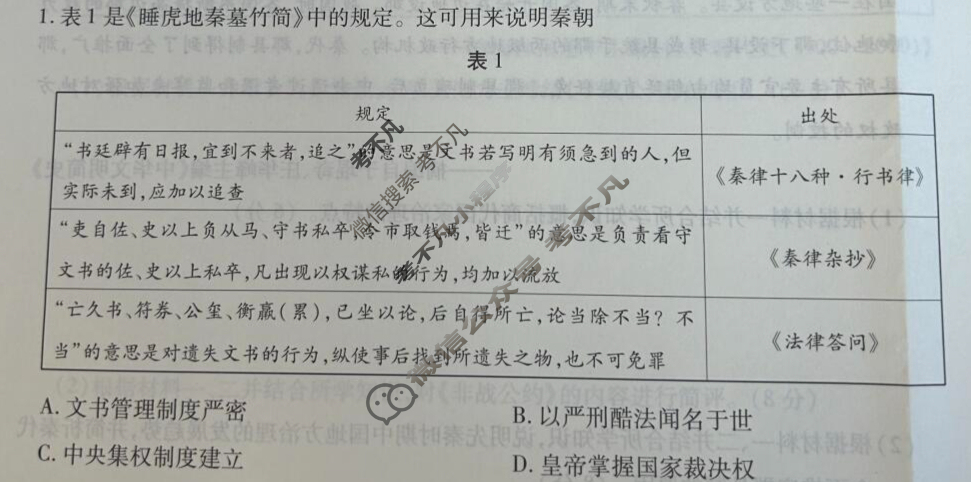 1. 表1是《睡虎地秦墓竹简》中的规定。这可用来说明秦朝
表1
规定
出处
“书廷辟有日报,宜到不来者,追之”的意思是文书若写明有须急到的人,但
实际未到,应加以追查
《秦律十八种·行书律》
“吏自佐、史以上负从马、守书私卒,令市取钱焉,皆迁”的意思是负责看守
文书的佐、史以上私卒,凡出现以权谋私的行为,均加以流放
《秦律杂抄》
“亡久书、符券、公玺、衡羸(累),已坐以论,后自得所亡,论当除不当?不
当”的意思是对遗失文书的行为,纵使事后找到所遗失之物,也不可免罪
《法律答问》
A. 文书管理制度严密
B. 以严刑酷法闻名于世
C. 中央集权制度建立
D. 皇帝掌握国家裁决权
考不凡
微信搜索考不凡
考不凡小程序
微信公众号考不凡